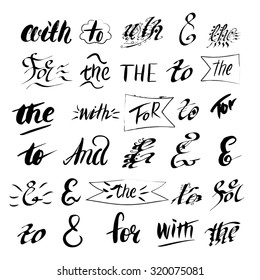 with to with & the
For the THE to the
the with FOR to For
to And & & &
& & the to for
to & for with the
shutterstock.com · 320075081